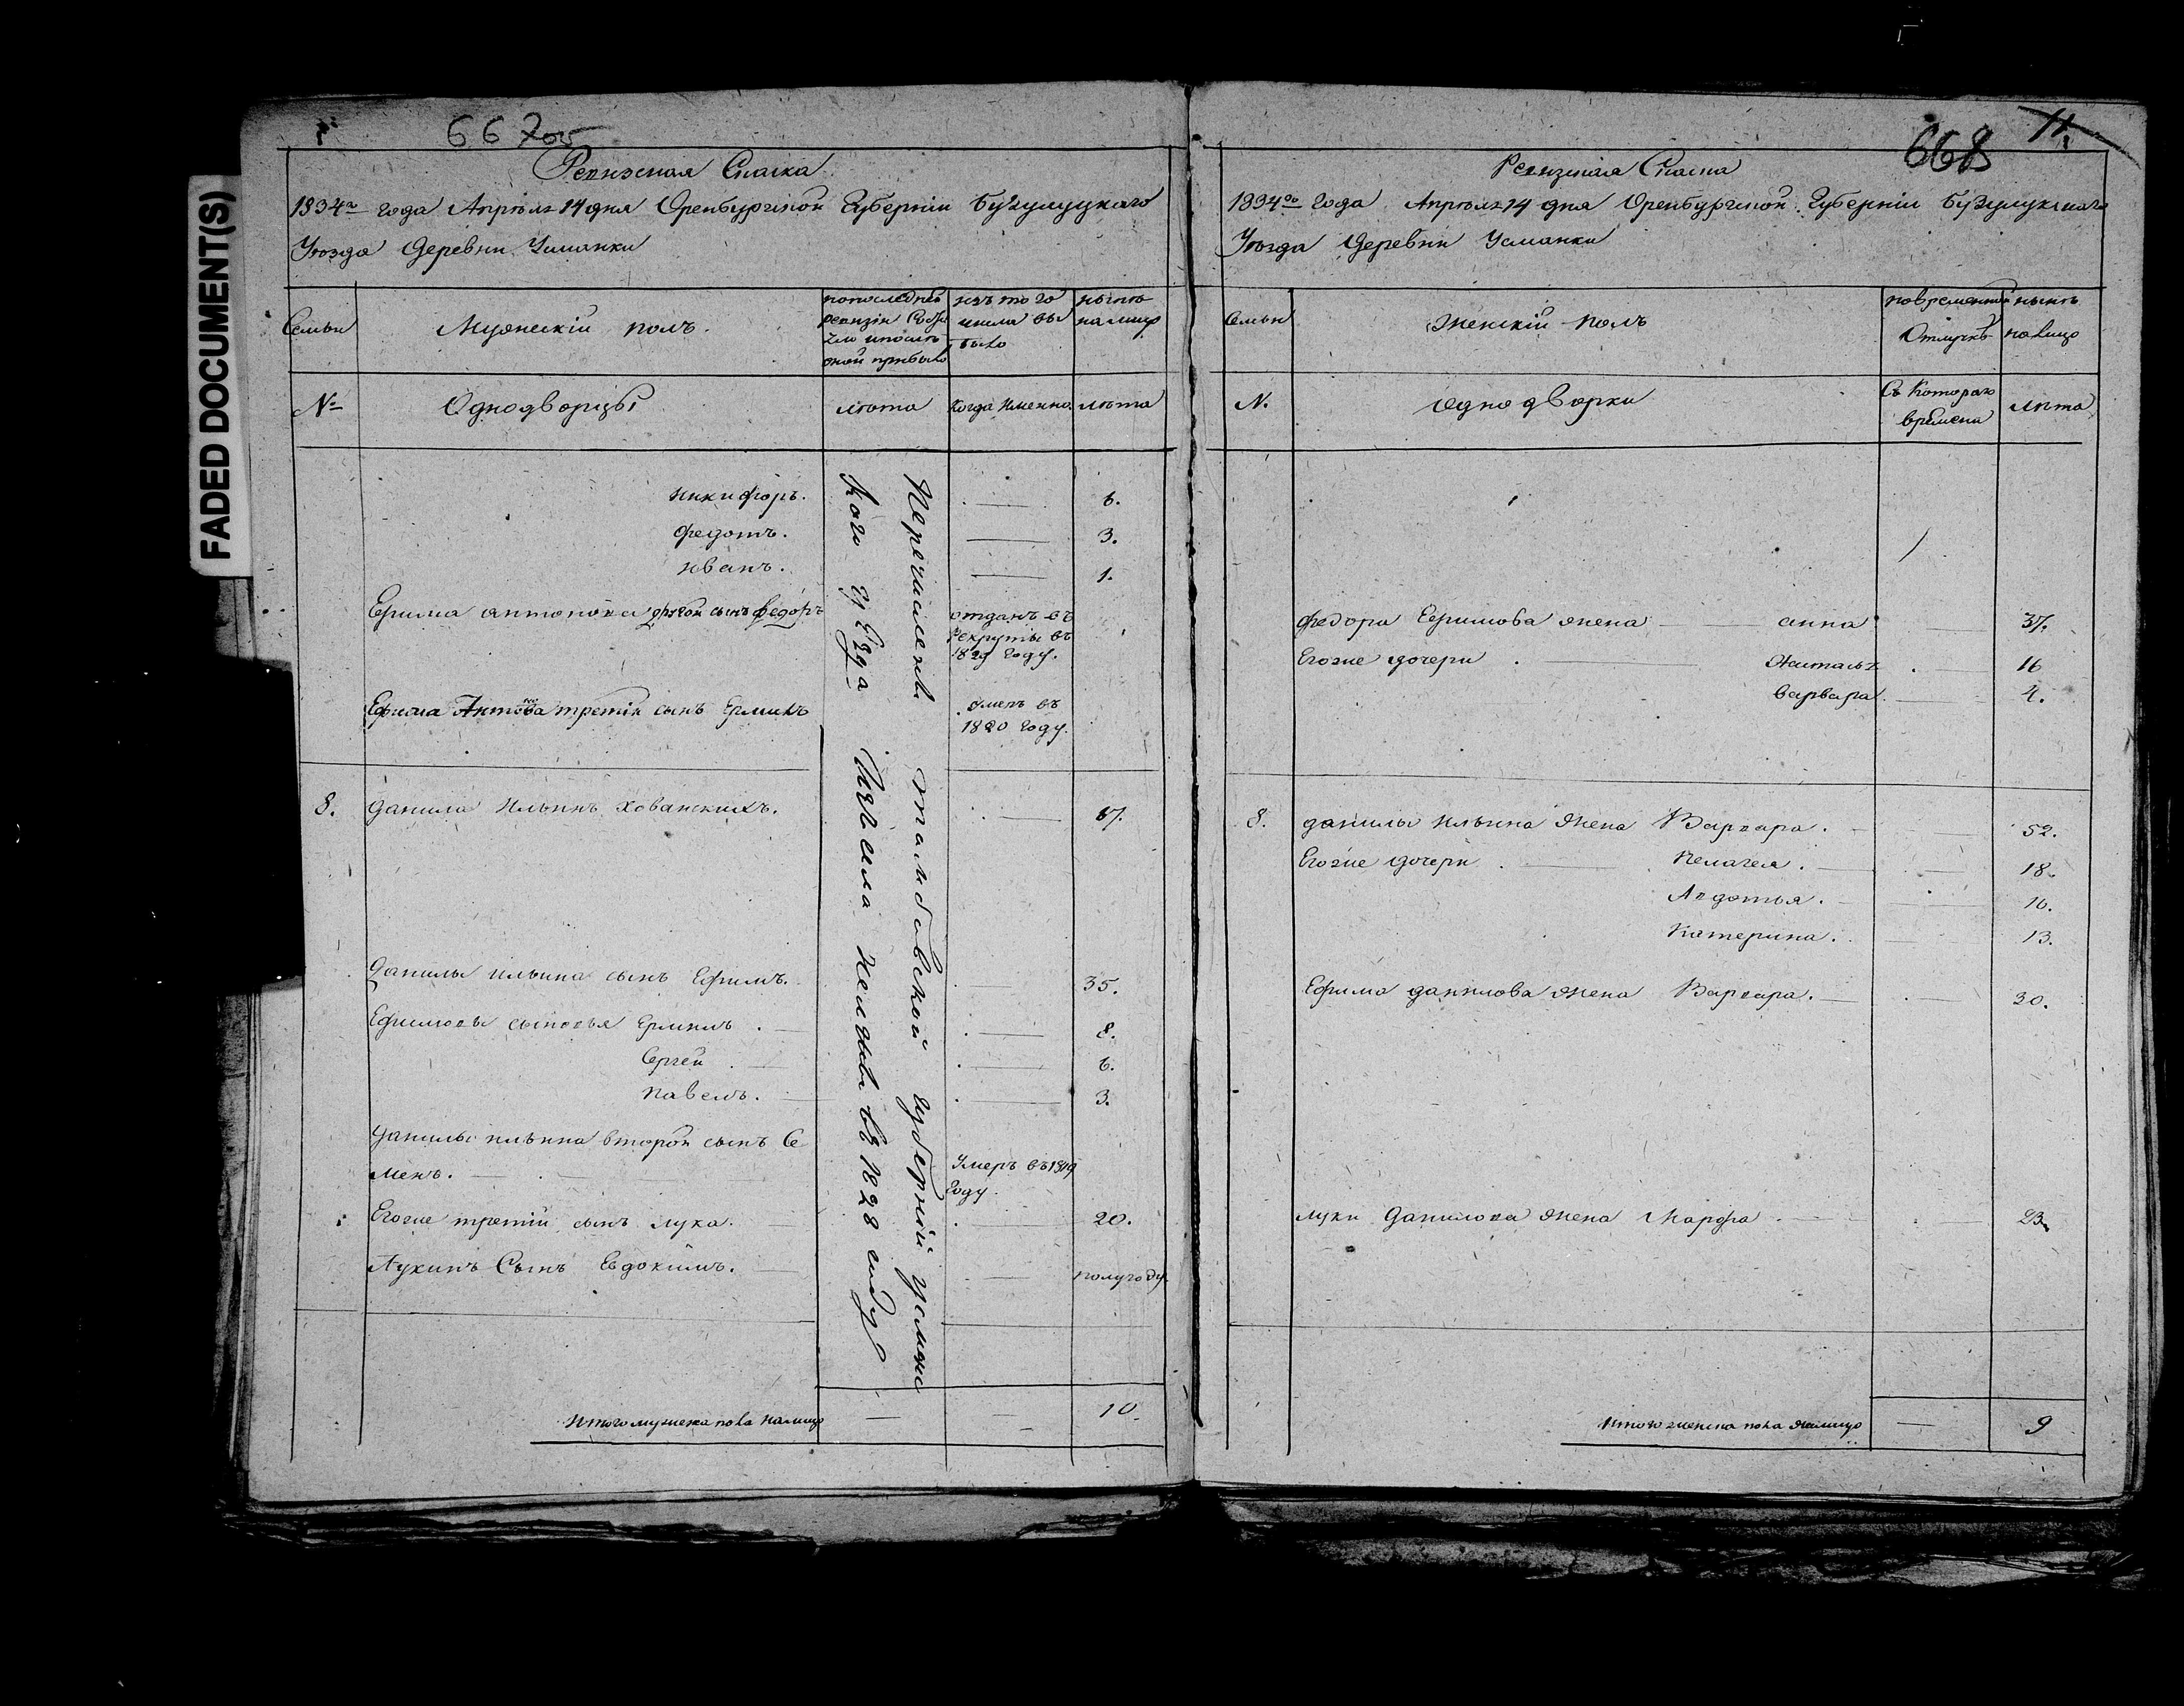 FADED DOCUMENT(S)
667об
Ревизская Сказка
1834го года Апреля 14 дня Оренбургской Губернии Бузулуцкаго
Уѣзда Деревни Усманки
Семьи
Мужескій полъ.
попоследней ревизіи Состояло ипослѣ оной прибыло
изъ того числа выбыло
нынѣ налицо
№
Однодворцы
лѣта
Когда Именно
лѣта
Никифоръ. 6.
Федотъ. 3.
Иванъ. 1.
Ефима антонова другой сынъ Федоръ
отданъ въ
рекруты въ
1829 году.
Ефима Антонова третій сынъ Ермилъ
умеръ въ
1820 году.
8. данила Ильинъ хованскихъ. 67.
Данилы ильина сынъ Ефимъ. 35.
Ефимовы сыновья Ермилъ. 8.
Сергей. 6.
Павелъ. 3.
Данилы ильина второй сынъ Се
менъ.
Умеръ въ 1819
году.
Егоже третій сынъ лука. 20.
Лукинъ Сынъ Евдокимъ. полугоду
Перечислены тамбовской губерніи усманс
кого уѣзда Изъ села въ 1828 году
Итого мужеска пола налицо — — 10.
668
11.
Ревизская Сказка
1834го года Апреля 14 дня Оренбургской Губерніи Бузулукскаго
Уѣзда Деревни Усманки
Семьи
Женскій полъ
повременной Отлучкѣ
налицо
№.
однодворки
Съ Котораго времени
лѣта
Федора Ефимова жена анна 37.
Егоже дочери Наталья 16
варвара 4.
8. данилы ильина жена Варвара. 52.
Егоже дочери Пелагея. 18.
Авдотья. 16.
Катерина. 13.
Ефима данилова жена Варвара. 30.
луки Данилова жена Марфа. 23.
Итого женска пола налицо — 9